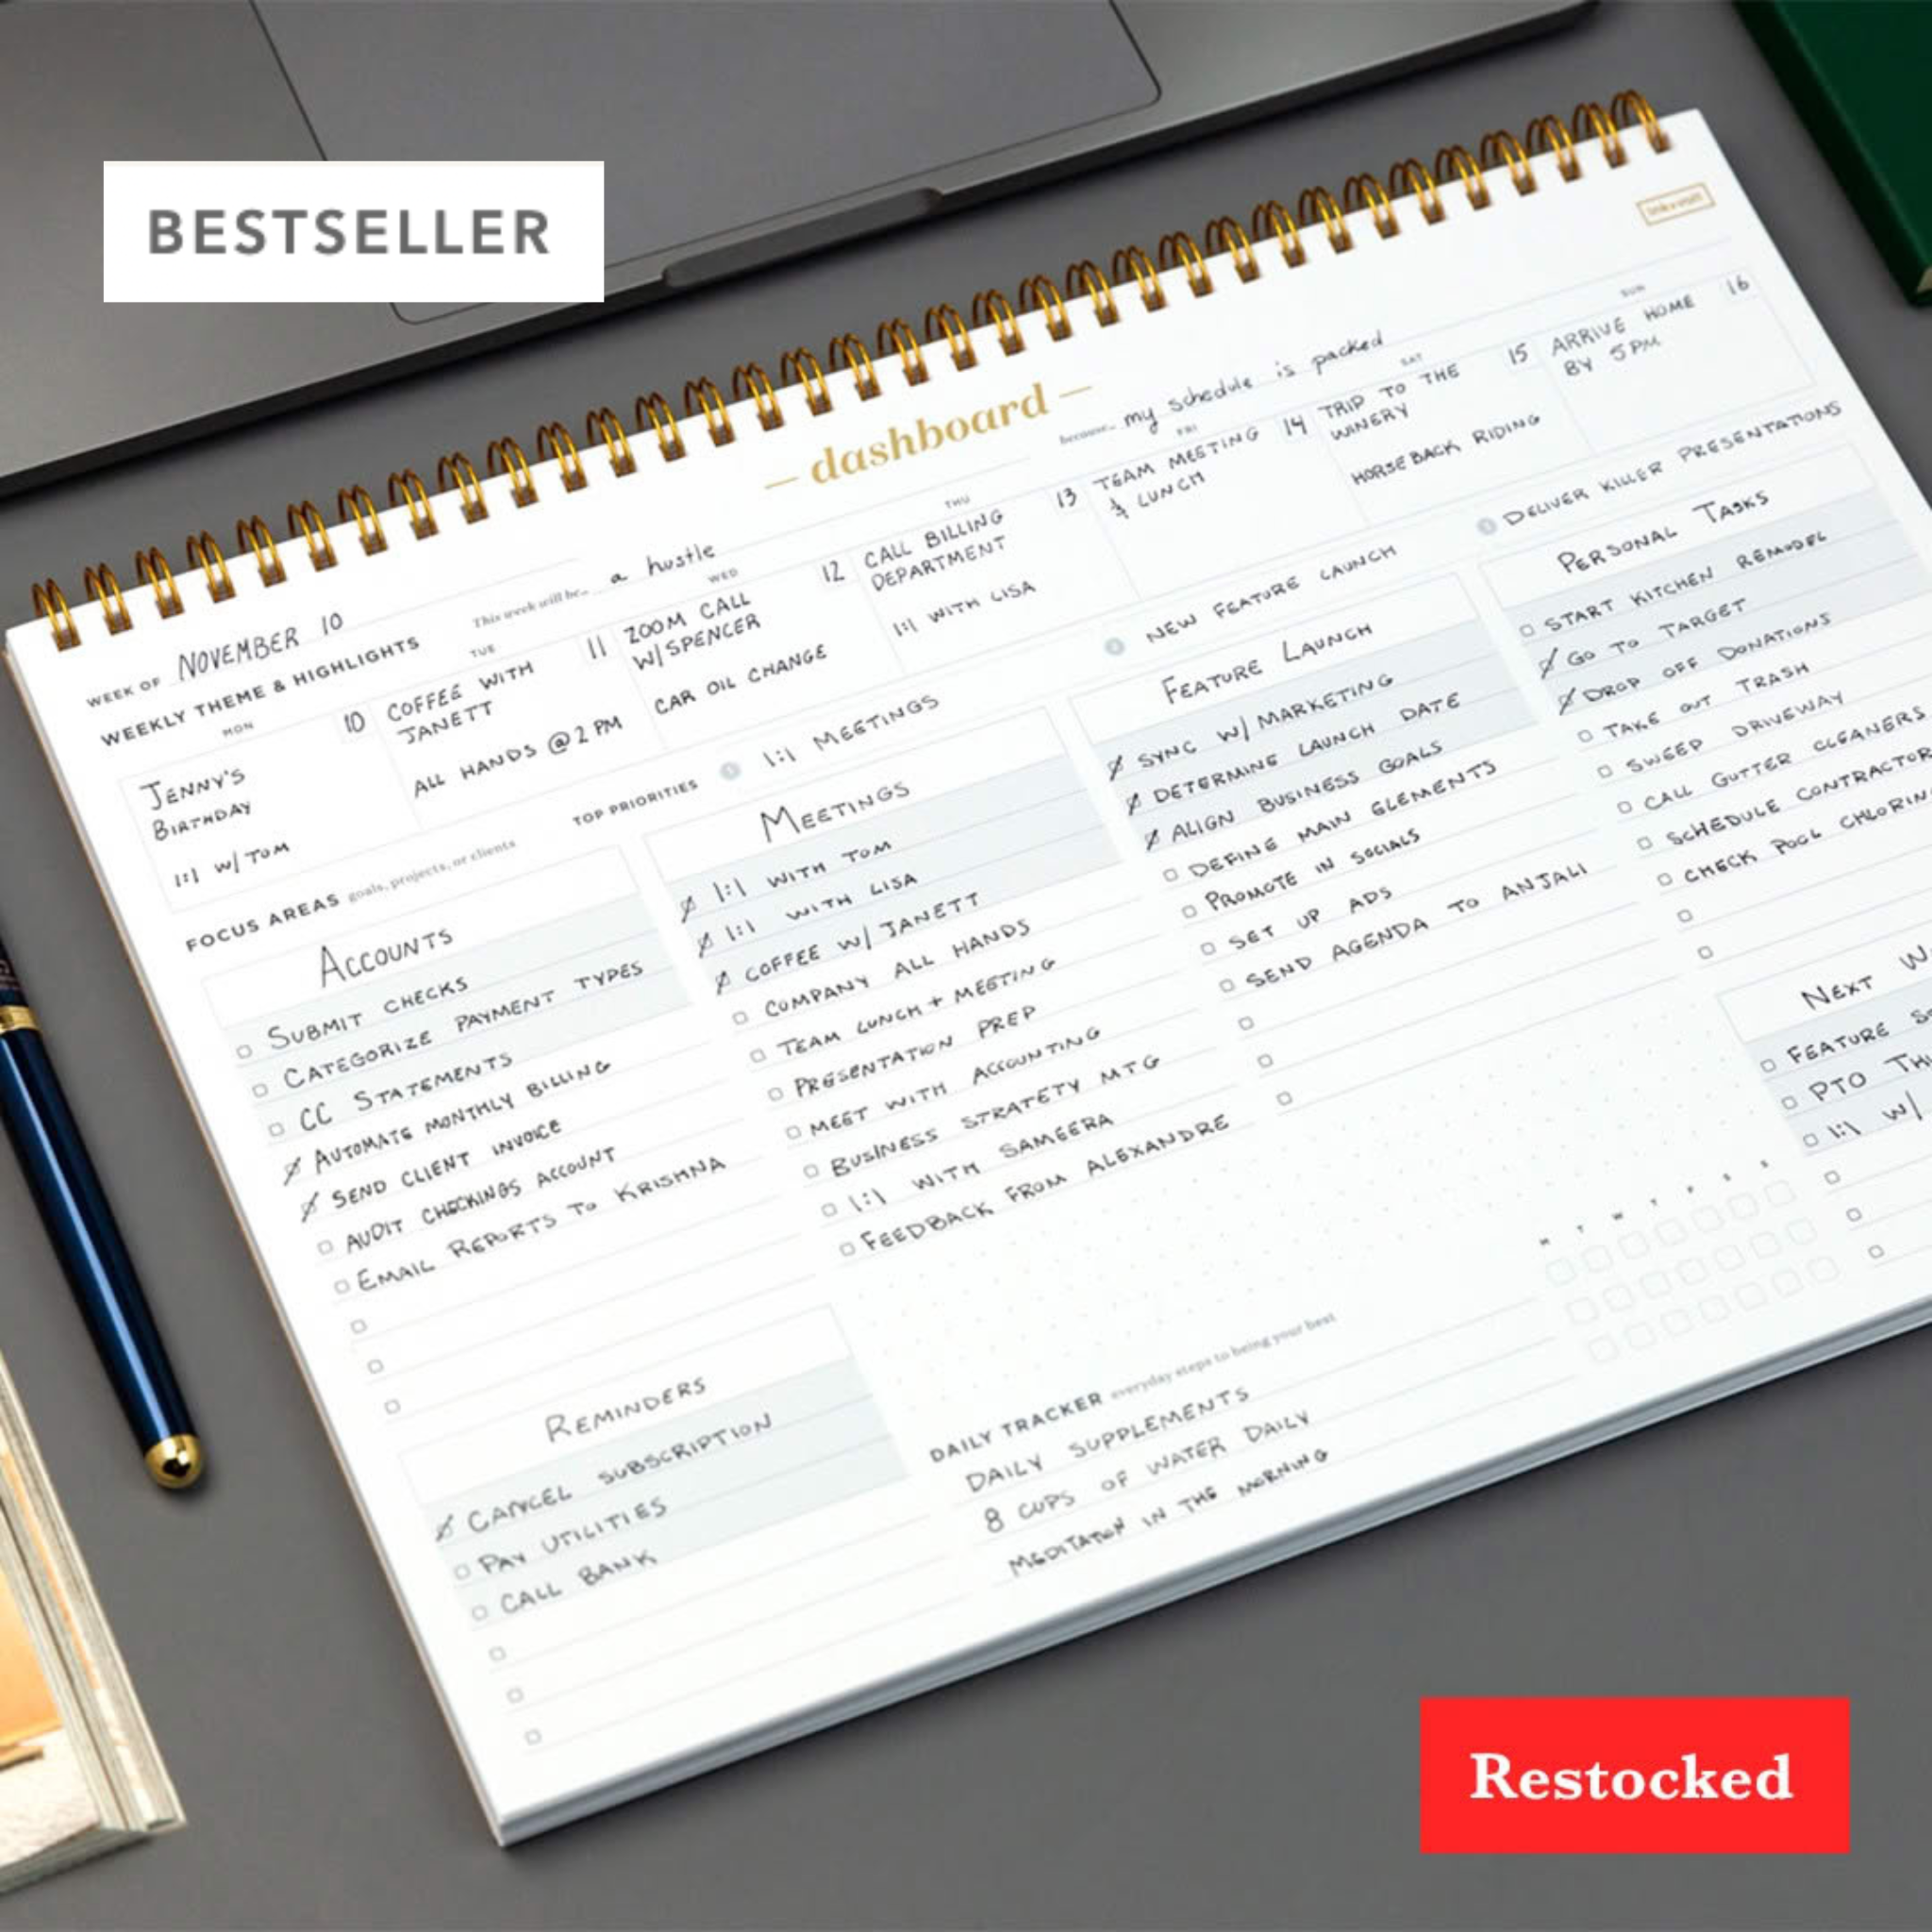 BESTSELLER
dashboard
WEEK OF NOVEMBER 10
This week will be... a hustle
because... my schedule is packed
WEEKLY THEME & HIGHLIGHTS
MON
10
JENNY'S
BIRTHDAY
1:1 W/ TOM
TUE
11
COFFEE WITH
JANETT
ALL HANDS @ 2 PM
WED
12
ZOOM CALL
W/ SPENCER
CAR OIL CHANGE
THU
13
CALL BILLING
DEPARTMENT
1:1 WITH LISA
FRI
14
TEAM MEETING
& LUNCH
SAT
15
TRIP TO THE
WINERY
HORSEBACK RIDING
SUN
16
ARRIVE HOME
BY 5 PM
TOP PRIORITIES
1 1:1 MEETINGS
2 NEW FEATURE LAUNCH
3 DELIVER KILLER PRESENTATIONS
FOCUS AREAS goals, projects, or clients
ACCOUNTS
SUBMIT CHECKS
CATEGORIZE PAYMENT TYPES
CC STATEMENTS
AUTOMATE MONTHLY BILLING
SEND CLIENT INVOICE
AUDIT CHECKINGS ACCOUNT
EMAIL REPORTS TO KRISHNA
MEETINGS
1:1 WITH TOM
1:1 WITH LISA
COFFEE W/ JANETT
COMPANY ALL HANDS
TEAM LUNCH + MEETING
PRESENTATION PREP
MEET WITH ACCOUNTING
BUSINESS STRATETY MTG
1:1 WITH SAMEERA
FEEDBACK FROM ALEXANDRE
FEATURE LAUNCH
SYNC W/ MARKETING
DETERMINE LAUNCH DATE
ALIGN BUSINESS GOALS
DEFINE MAIN ELEMENTS
PROMOTE IN SOCIALS
SET UP ADS
SEND AGENDA TO ANJALI
PERSONAL TASKS
START KITCHEN REMODEL
GO TO TARGET
DROP OFF DONATIONS
TAKE OUT TRASH
SWEEP DRIVEWAY
CALL GUTTER CLEANERS
SCHEDULE CONTRACTOR
CHECK POOL CHLORIN
NEXT W
FEATURE
PTO TH
1:1 W/
REMINDERS
CANCEL SUBSCRIPTION
PAY UTILITIES
CALL BANK
DAILY TRACKER everyday steps to being your best
M T W T F S S
DAILY SUPPLEMENTS
8 CUPS OF WATER DAILY
MEDITATION IN THE MORNING
Restocked